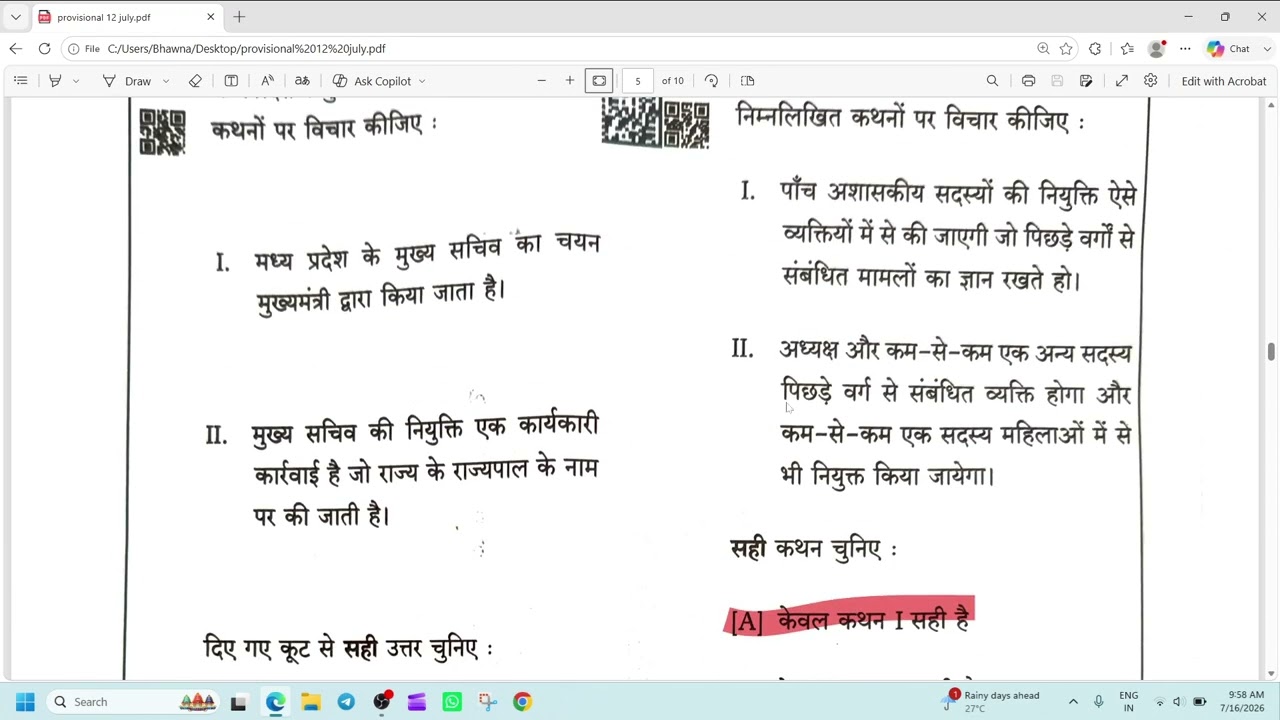 provisional 12 july.pdf
File C:/Users/Bhawna/Desktop/provisional%2012%20july.pdf
Chat
Draw
Ask Copilot
5 of 10
Edit with Acrobat
कथनों पर विचार कीजिए :
I. मध्य प्रदेश के मुख्य सचिव का चयन
मुख्यमंत्री द्वारा किया जाता है।
II. मुख्य सचिव की नियुक्ति एक कार्यकारी
कार्रवाई है जो राज्य के राज्यपाल के नाम
पर की जाती है।
दिए गए कूट से सही उत्तर चुनिए :
निम्नलिखित कथनों पर विचार कीजिए :
I. पाँच अशासकीय सदस्यों की नियुक्ति ऐसे
व्यक्तियों में से की जाएगी जो पिछड़े वर्गों से
संबंधित मामलों का ज्ञान रखते हो।
II. अध्यक्ष और कम-से-कम एक अन्य सदस्य
पिछड़े वर्ग से संबंधित व्यक्ति होगा और
कम-से-कम एक सदस्य महिलाओं में से
भी नियुक्त किया जायेगा।
सही कथन चुनिए :
[A] केवल कथन I सही है
Search
1
Rainy days ahead
27°C
ENG
IN
9:58 AM
7/16/2026